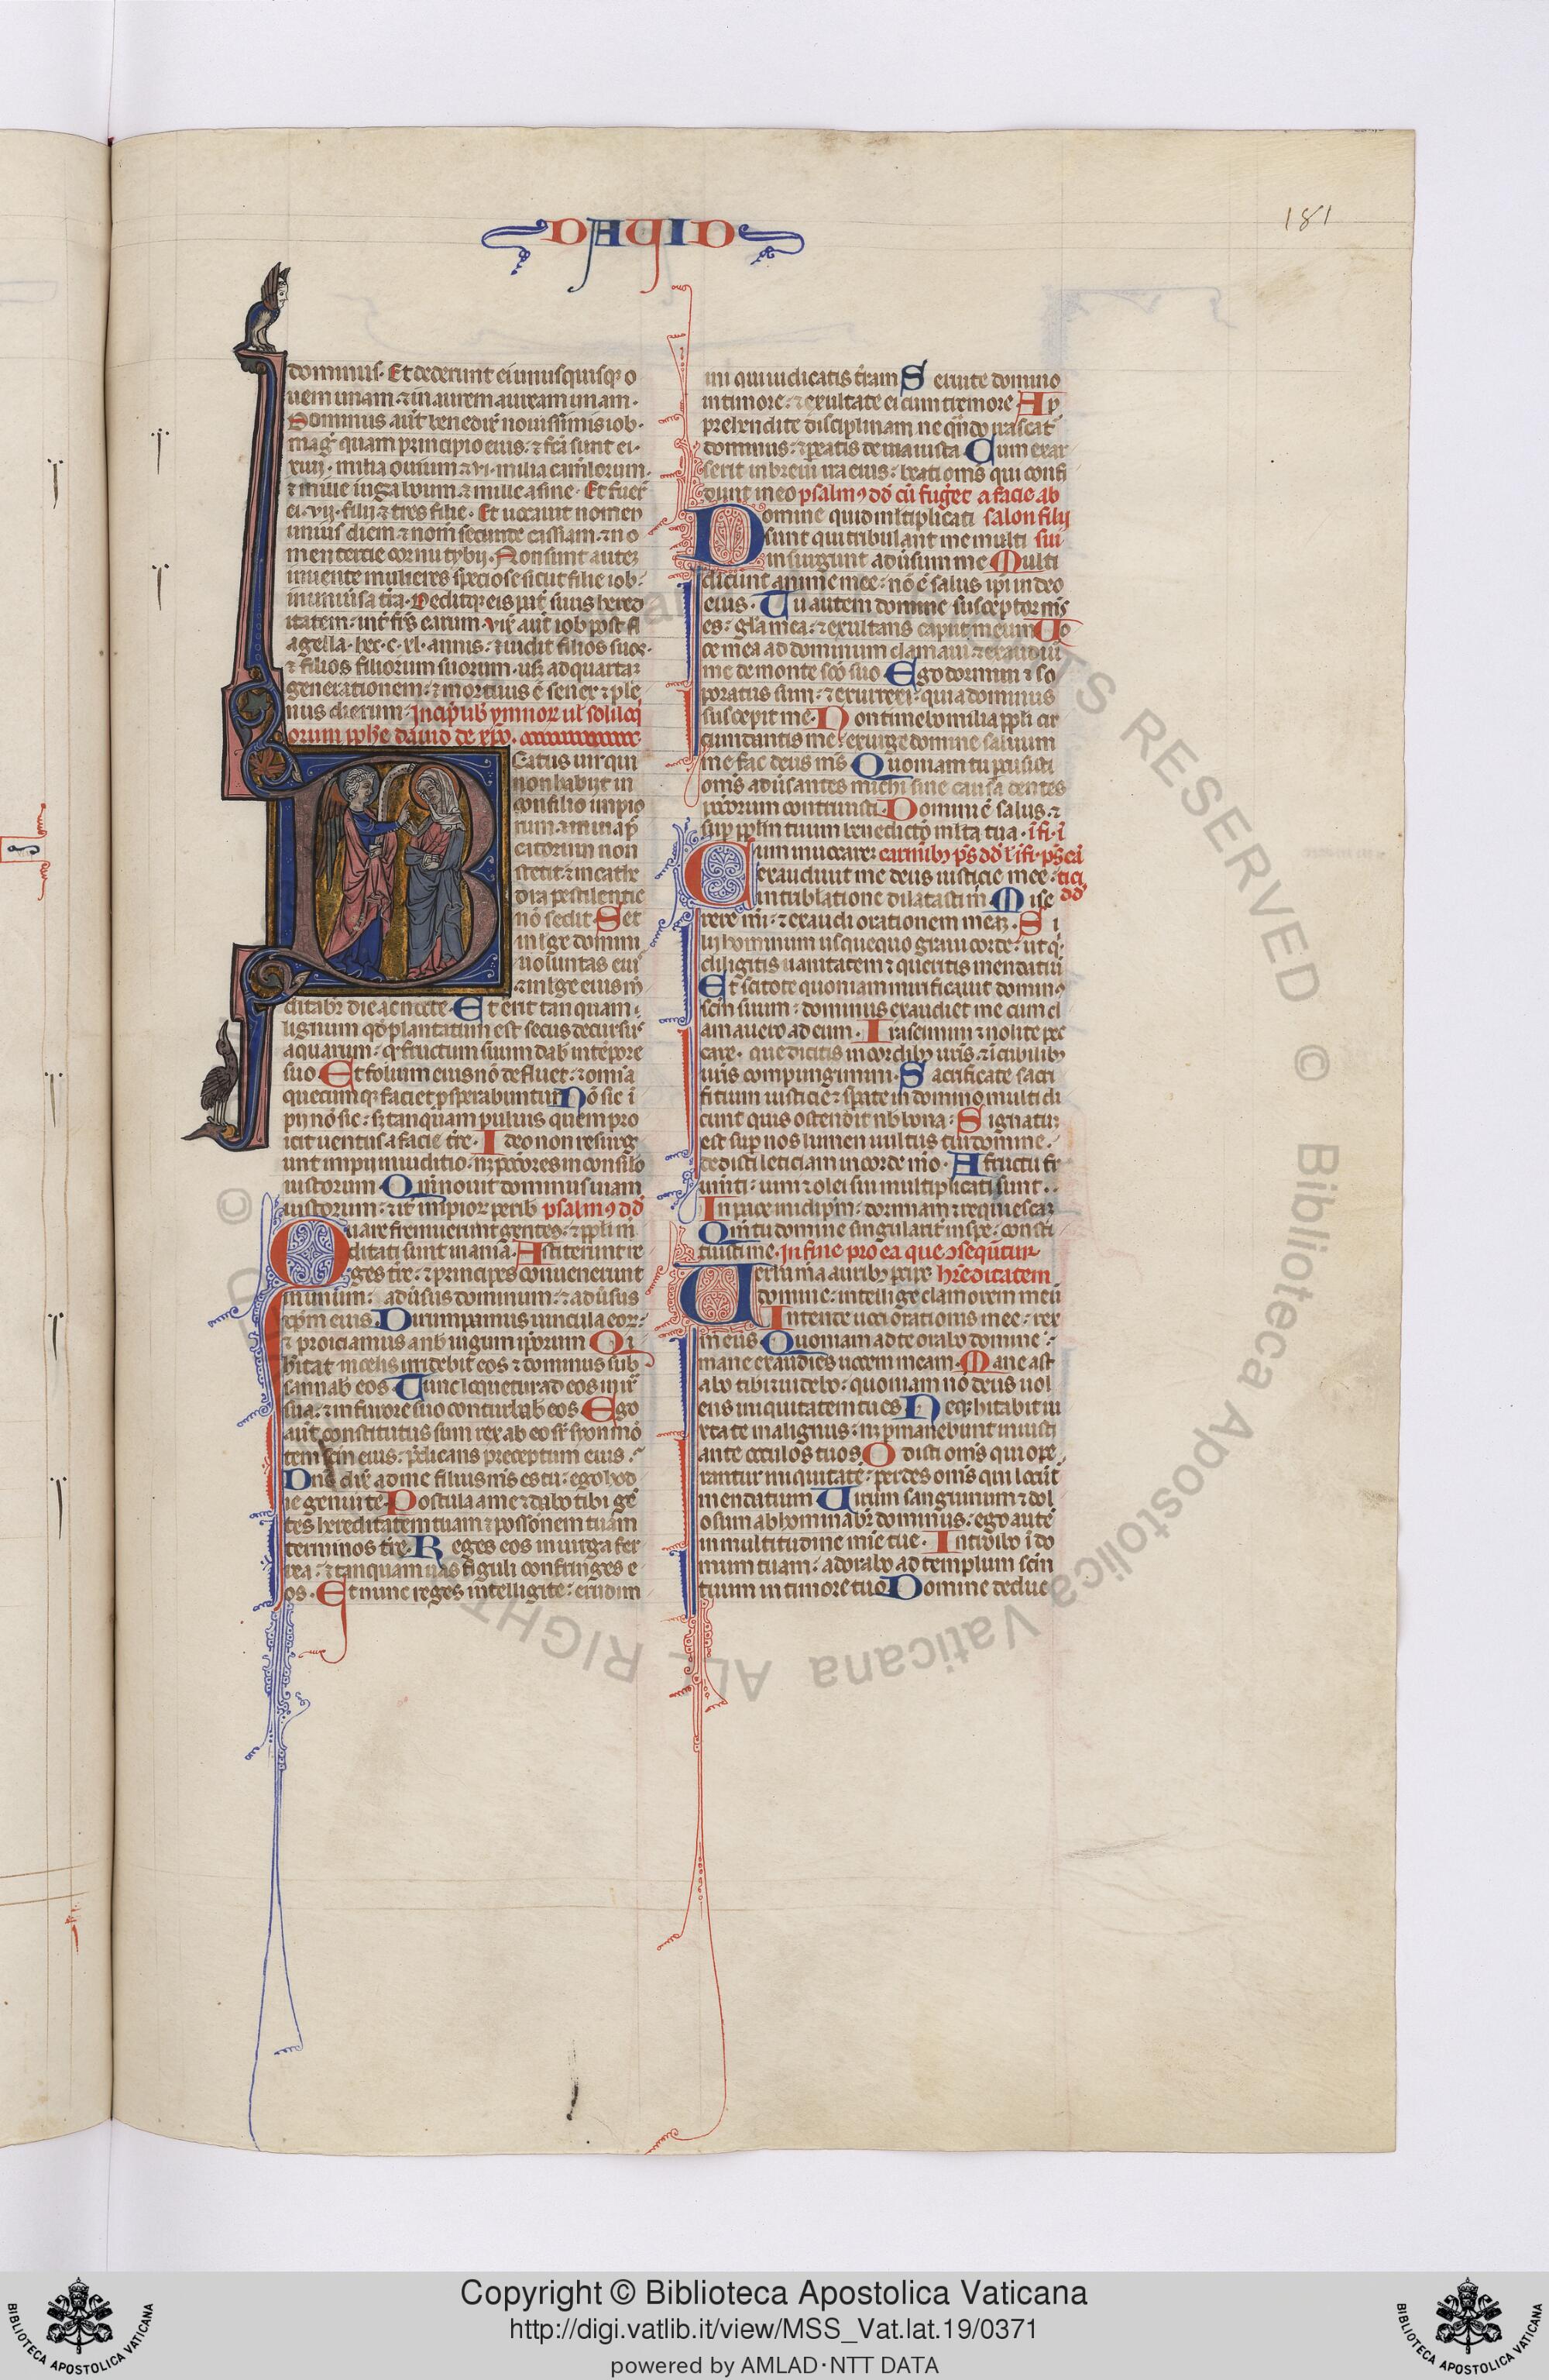 DAVID
181
dominus. Et dederunt ei unusquisqꝫ o
uem unam. ⁊ in aurem auream unam.
Dominus aut̄ benedix̄ nouissimis iob.
mag̃ quam principio eius. ⁊ fc̄a sunt ei.
xiiij. milia ouium. ⁊ vi. milia camelorum.
⁊ mille iuga boum. ⁊ mille asine. Et fuer̄
ei. vij. filij ⁊ tres filie. Et uocauit nomen
unius diem. ⁊ nom̄ secunde cassiam. ⁊ no
men tercie cornu tybij. Non sunt auteꝫ
inuente mulieres speciose sicut filie iob.
in uniu̾sa t̄ra. Deditqꝫ eis pat̄ suus hered
itatem. int̄ fr̄s earum. vix̄ aut̄ iob post fl
agella. hec. c. xl. annis. ⁊ uidit filios suos.
⁊ filios filiorum suorum. usqꝫ ad quartaꝫ
generationem. ⁊ mortuus ē senex ⁊ ple
nus dierum. Incip̄ lib̄ ymnoꝝ ul̓ soliloq̄
orum ꝓph̄e dauid de xp̄o.
Eatus uir qui
non habijt in
consilio impio
rum. ⁊ in uia p̄c
catorum non
stetit. ⁊ in cathe
dra pestilentie
nō sedit. Set
in lege domini
uoluntas eiu᷒
⁊ in lege eius m̄
ditabr̄ die ac nocte. Et erit tanquam
lignum qd̄ plantatum est secus decursu᷒
aquarum. qd̓ fructum suum dab̄ in tēpore
suo. Et folium eius nō defluet. ⁊ omnia
quecumqꝫ faciet ꝓsperabuntur. Nō sic ī
pij nō sic. sꝫ tanquam puluis quem pro
icit uentus a facie t̄re. Ideo non resurg
unt impij in iuditio. nꝫ pcc̄ores in consilio
iustorum. Qm̄ nouit dominus uiam
iustorum. ⁊ it̄ impioꝝ perib̄ psalmꝰ dd̓
Quare fremuerunt gentes. ⁊ ppl̓i m
editati sunt inania. Astiterunt re
ges t̄re. ⁊ principes conuenerunt
in unum. adu̾sus dominum. ⁊ adu̾sus
xp̄m eius. Dirumpamus uincula eoꝝ.
⁊ proiciamus a nob̄ iugum ip̄orum. Qi
h̄itat in celis irridebit eos ⁊ dominus sub
sannab̄ eos. Tunc loquetur ad eos in ir̄
sua. ⁊ in furore suo conturbab̄ eos. Ego
aut̄ constitutus sum rex ab eo sr̄ syon mō
tem sc̄m eius. p̄dicans preceptum eius.
Dn̄s dix̄ ad me filius m̄s es tu. ego hod
ie genui te. Postula a me ⁊ dabo tibi gē
tes hereditatem tuam ⁊ possōnem tuam
terminos t̄re. Reges eos in uirga fer
rea. ⁊ tanquam uas figuli confringes e
os. Et nunc reges intelligite. erudim
ini qui iudicatis t̄ram. Seruite domino
in timore. ⁊ exultate ei cum tremore. Ap
prehendite disciplinam ne qn̄do irascat̄
dominus. ⁊ peatis de uia iusta. Cum exar
serit in breui ira eius. beati om̄s qui confi
dunt in eo psalmꝰ dd̓ cū fuġet a facie ab
Domine quid ml̓tiplicati salon filij
sunt qui tribulant me multi sui
insurgunt adu̾sum me. Multi
dicunt anime mee. nō ē salus ip̄i in deo
eius. Tu autem domine susceptor m̄s
es. gl̓a mea. ⁊ exultans caput meum. Uo
ce mea ad dominum clamaui ⁊ exaudiui
me de monte sc̄o suo. Ego dormiui ⁊ so
poratus sum. ⁊ exurrexi. quia dominus
suscepit me. Non timebo milia ppl̓i cir
cumdantis me. exurge domine saluum
me fac deus m̄s. Quoniam tu pcussisti
om̄s adu̾santes michi sine causa dentes
pcc̄orum contriuisti. Domini ē salus. ⁊
sup ppl̓m tuum benedictō ml̓ta tua. ī fi. ī
Cum inuocarē. carminibꝫ p̄s dd̓ ī fi. p̄s cā
exaudiuit me deus iusticie mee. tici
in tribl̓atione dilatasti m̄. Mise dd̓
rere mī. ⁊ exaudi orationem meaꝫ. Fi
lij hominum usquequo graui corde. ut qd̓
diligitis uanitatem ⁊ queritis mendatiū
Et scitote quoniam mirificauit dominꝰ
sc̄m suum. dominus exaudiet me cum cl
amauero ad eum. Irascimini ⁊ nolite pec
care. que dicitis in cordibꝫ ur̄is. ⁊ ī cubilibꝫ
ur̄is compungimini. Sacrificate sacri
fitium iusticie ⁊ sperate in domino multi di
cunt quis ostendit nb̄ bona. Signatuꝝ
est sup nos lumen uultus tui domine.
dedisti leticiam in corde m̄o. A fructu fr
umīti. uini ⁊ olei sui multiplicati sunt.
In pace in idip̄m. dormiam ⁊ requiescaꝫ
Qm̄ tu domine singularit̄ in spe. consti
tuisti me. In fine pro ea que ꝯsequitur
Uerba mea auribꝫ pcipe hr̄editatem
domine. intellige clamorem meū
Intende uoci orationis mee. rex
m̄s ⁊ deus m̄eus. Quoniam ad te orabo domine.
mane exaudies uocem meam. Mane ast
abo tibi ⁊ uidebo. quoniam nō deus uol
ens iniquitatem tu es. Neqꝫ h̄itabit iu
xta te malignus. nꝫ pmanebunt iniusti
ante occulos tuos. Odisti om̄s qui ope
rantur iniquitatē. perdes om̄s qui locūt̄
mendatium. Uirum sanguinum ⁊ dol
osum abhominabr̄ dominus. ego autē
in multitudine mīe tue. Introibo ī do
mum tuam. adorabo ad templum sc̄m
tuum in timore tuo. Domine deduc
Copyright © Biblioteca Apostolica Vaticana
http://digi.vatlib.it/view/MSS_Vat.lat.19/0371
powered by AMLAD·NTT DATA
BIBLIOTECA APOSTOLICA VATICANA
BIBLIOTECA APOSTOLICA VATICANA
© Biblioteca Apostolica Vaticana ALL RIGHTS RESERVED